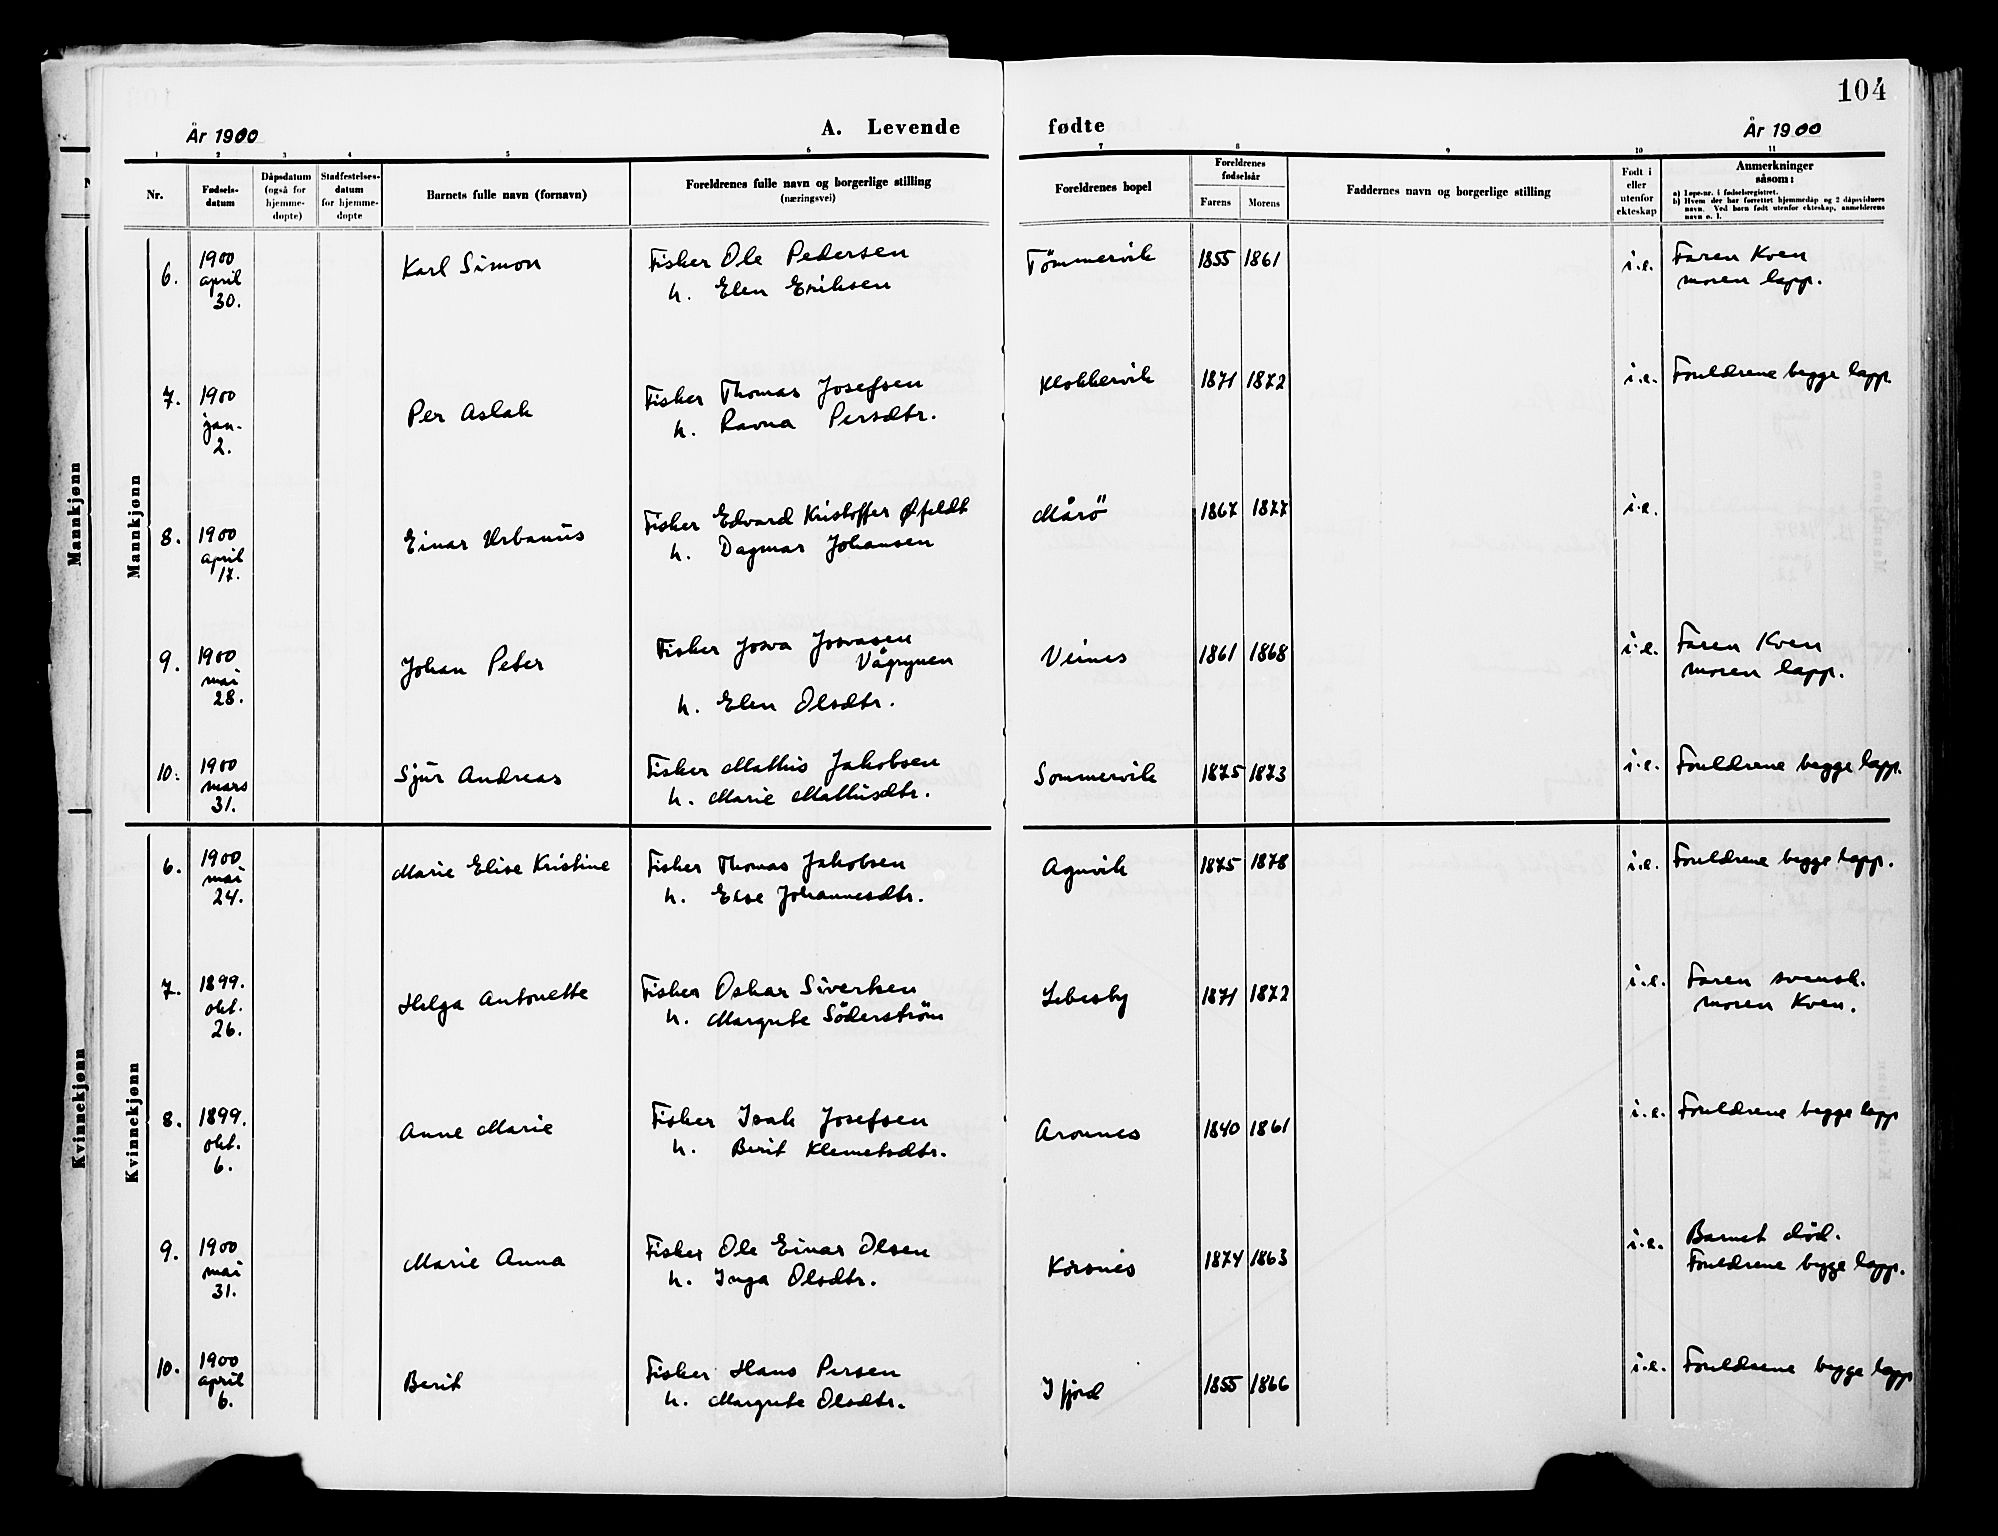 104
År 1900
A. Levende fødte
År 1900
1 2 3 4 5 6 7 8 9 10 11
Nr.
Fødsels-
datum
Dåpsdatum
(også for
hjemme-
døpte)
Stadfestelses-
datum
for hjemme-
døpte
Barnets fulle navn (fornavn)
Foreldrenes fulle navn og borgerlige stilling
(næringsvei)
Foreldrenes bopel
Foreldrenes
fødselsår
Farens Morens
Faddernes navn og borgerlige stilling
Født i
eller
utenfor
ekteskap
Anmerkninger
såsom:
a) Løpe-nr. i fødselsregistret.
b) Hvem der har forrettet hjemmedåp og 2 dåpsvidners
navn. Ved barn født utenfor ekteskap, anmelderens
navn o. l.
Mannkjønn
Mannkjønn
6. 1900 april 30. Karl Simon
Fisher Ole Pedersen
h. Elen Eriksen
Tømmervik 1855 1861 i.e. Faren Kven
moren lapp.
7. 1900 jan. 2. Per Aslak
Fisker Thomas Josefsen
h. Ravna Persdtr.
Klokkervik 1871 1872 i.e. Foreldrene begge lapp
8. 1900 april 17. Einar Urbanus
Fisker Edvard Kristoffer Øfeldt
h. Dagmar Johansen
Mårö 1867 1877 i.e.
9. 1900 mai 28. Johan Peter
Fisker Josva Josvasen
Vågrynen
h. Elen Olsdtr.
Veines 1861 1868 i.e. Faren Kven
moren lapp.
10. 1900 mars 31. Sjur Andreas
Fisker Mathis Jakobsen
h. Marie Mathisdtr.
Sommervik 1875 1873 i.e. Foreldrene begge lapp.
Kvinnekjønn
Kvinnekjønn
6. 1900 mai 24. Marie Elise Kristine
Fisker Thomas Jakobsen
h. Else Johannesdtr.
Agnvik 1875 1878 i.e. Foreldrene begge lapp.
7. 1899. okt. 26. Helga Antonette
Fisker Oskar Sivertsen
h. Margrete Söderström
Lebesby 1871 1872 i.e. Faren svensk.
moren Kven.
8. 1899. okt. 6. Anne Marie
Fisker Isak Josefsen
h. Berit Klemetsdtr.
Aronnes 1840 1861 i.e. Foreldrene begge lapp
9. 1900 mai 31. Marie Anna
Fisker Ole Einar Olsen
h. Inga Olsdtr.
Korsnes 1874 1863 i.e. Barnet död.
Foreldrene begge lapp.
10. 1900 april 6. Berit
Fisker Hans Persen
h. Margrete Olsdtr.
Ifjord 1855 1866 i.e. Foreldrene begge lapp